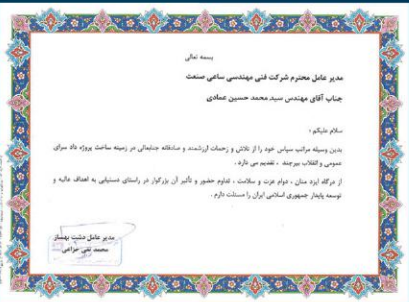 بسمه تعالی
مدیر عامل محترم شرکت فنی مهندسی ساعی صنعت
جناب آقای مهندس سید محمد حسین عمادی
سلام علیکم ؛
بدین وسیله مراتب سپاس خود را از تلاش و زحمات ارزشمند و صادقانه جنابعالی در زمینه ساخت پروژه داد سرای
عمومی و انقلاب بیرجند ، تقدیم می دارد .
از درگاه ایزد منان ، دوام عزت و سلامت ، تداوم حضور و تأثیر آن بزرگوار در راستای دستیابی به اهداف عالیه و
توسعه پایدار جمهوری اسلامی ایران را مسئلت دارم .
مدیر عامل دشت بهساز
محمد تقی خزاعی